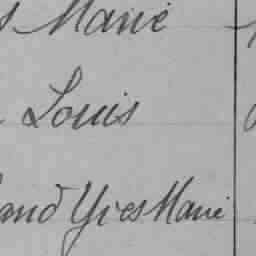 s Marie
Louis
and Yves Marie